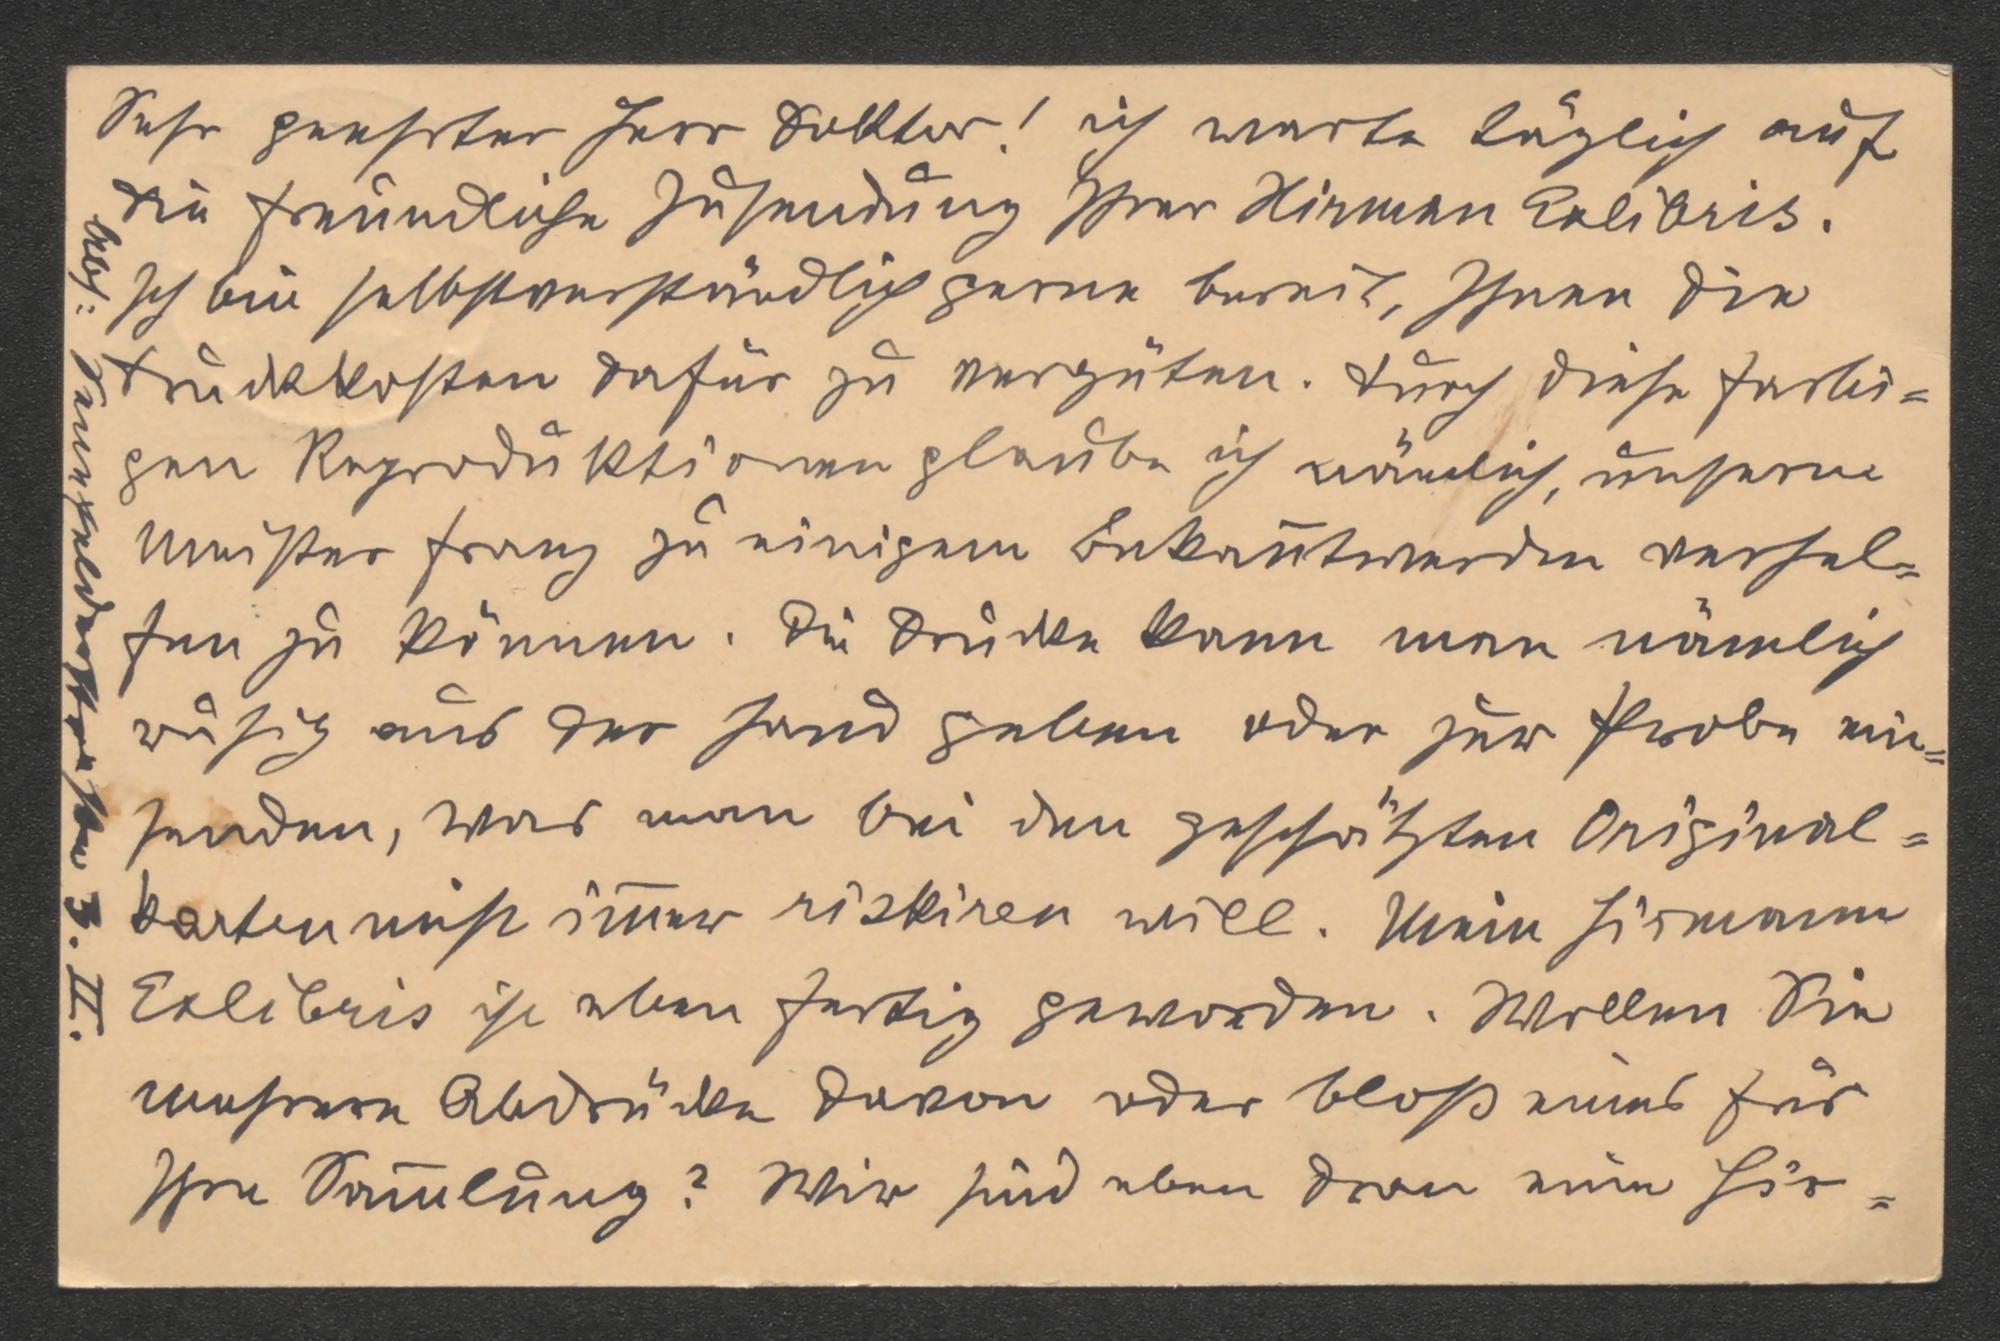 Sehr geehrter Herr Doktor! ich warte täglich auf
die freundliche Zusendung Ihrer Hirman Exlibris.
Ich bin selbstverständlich gerne bereit, Ihnen die
Druckkosten dafür zu vergüten. Durch diese farbi=
gen Reproduktionen glaube ich nämlich, unserne
Meister Franz zu einigem Bekan̄twerden verhel=
fen zu können. Die Drucke kann man nämlich
ruhig aus der Hand geben oder zur Probe ein=
senden, was man bei den geschätzten Original=
karten nicht im̄er riskiren will. Mein Hirmann
Exlibris ist eben fertig geworden. Wollen Sie
mehrere Abdrücke davon oder bloß eines für
Ihre Sam̄lung? Wir sind eben dran eine Hir=
Abs: Sennefelderstrasse 3. II.